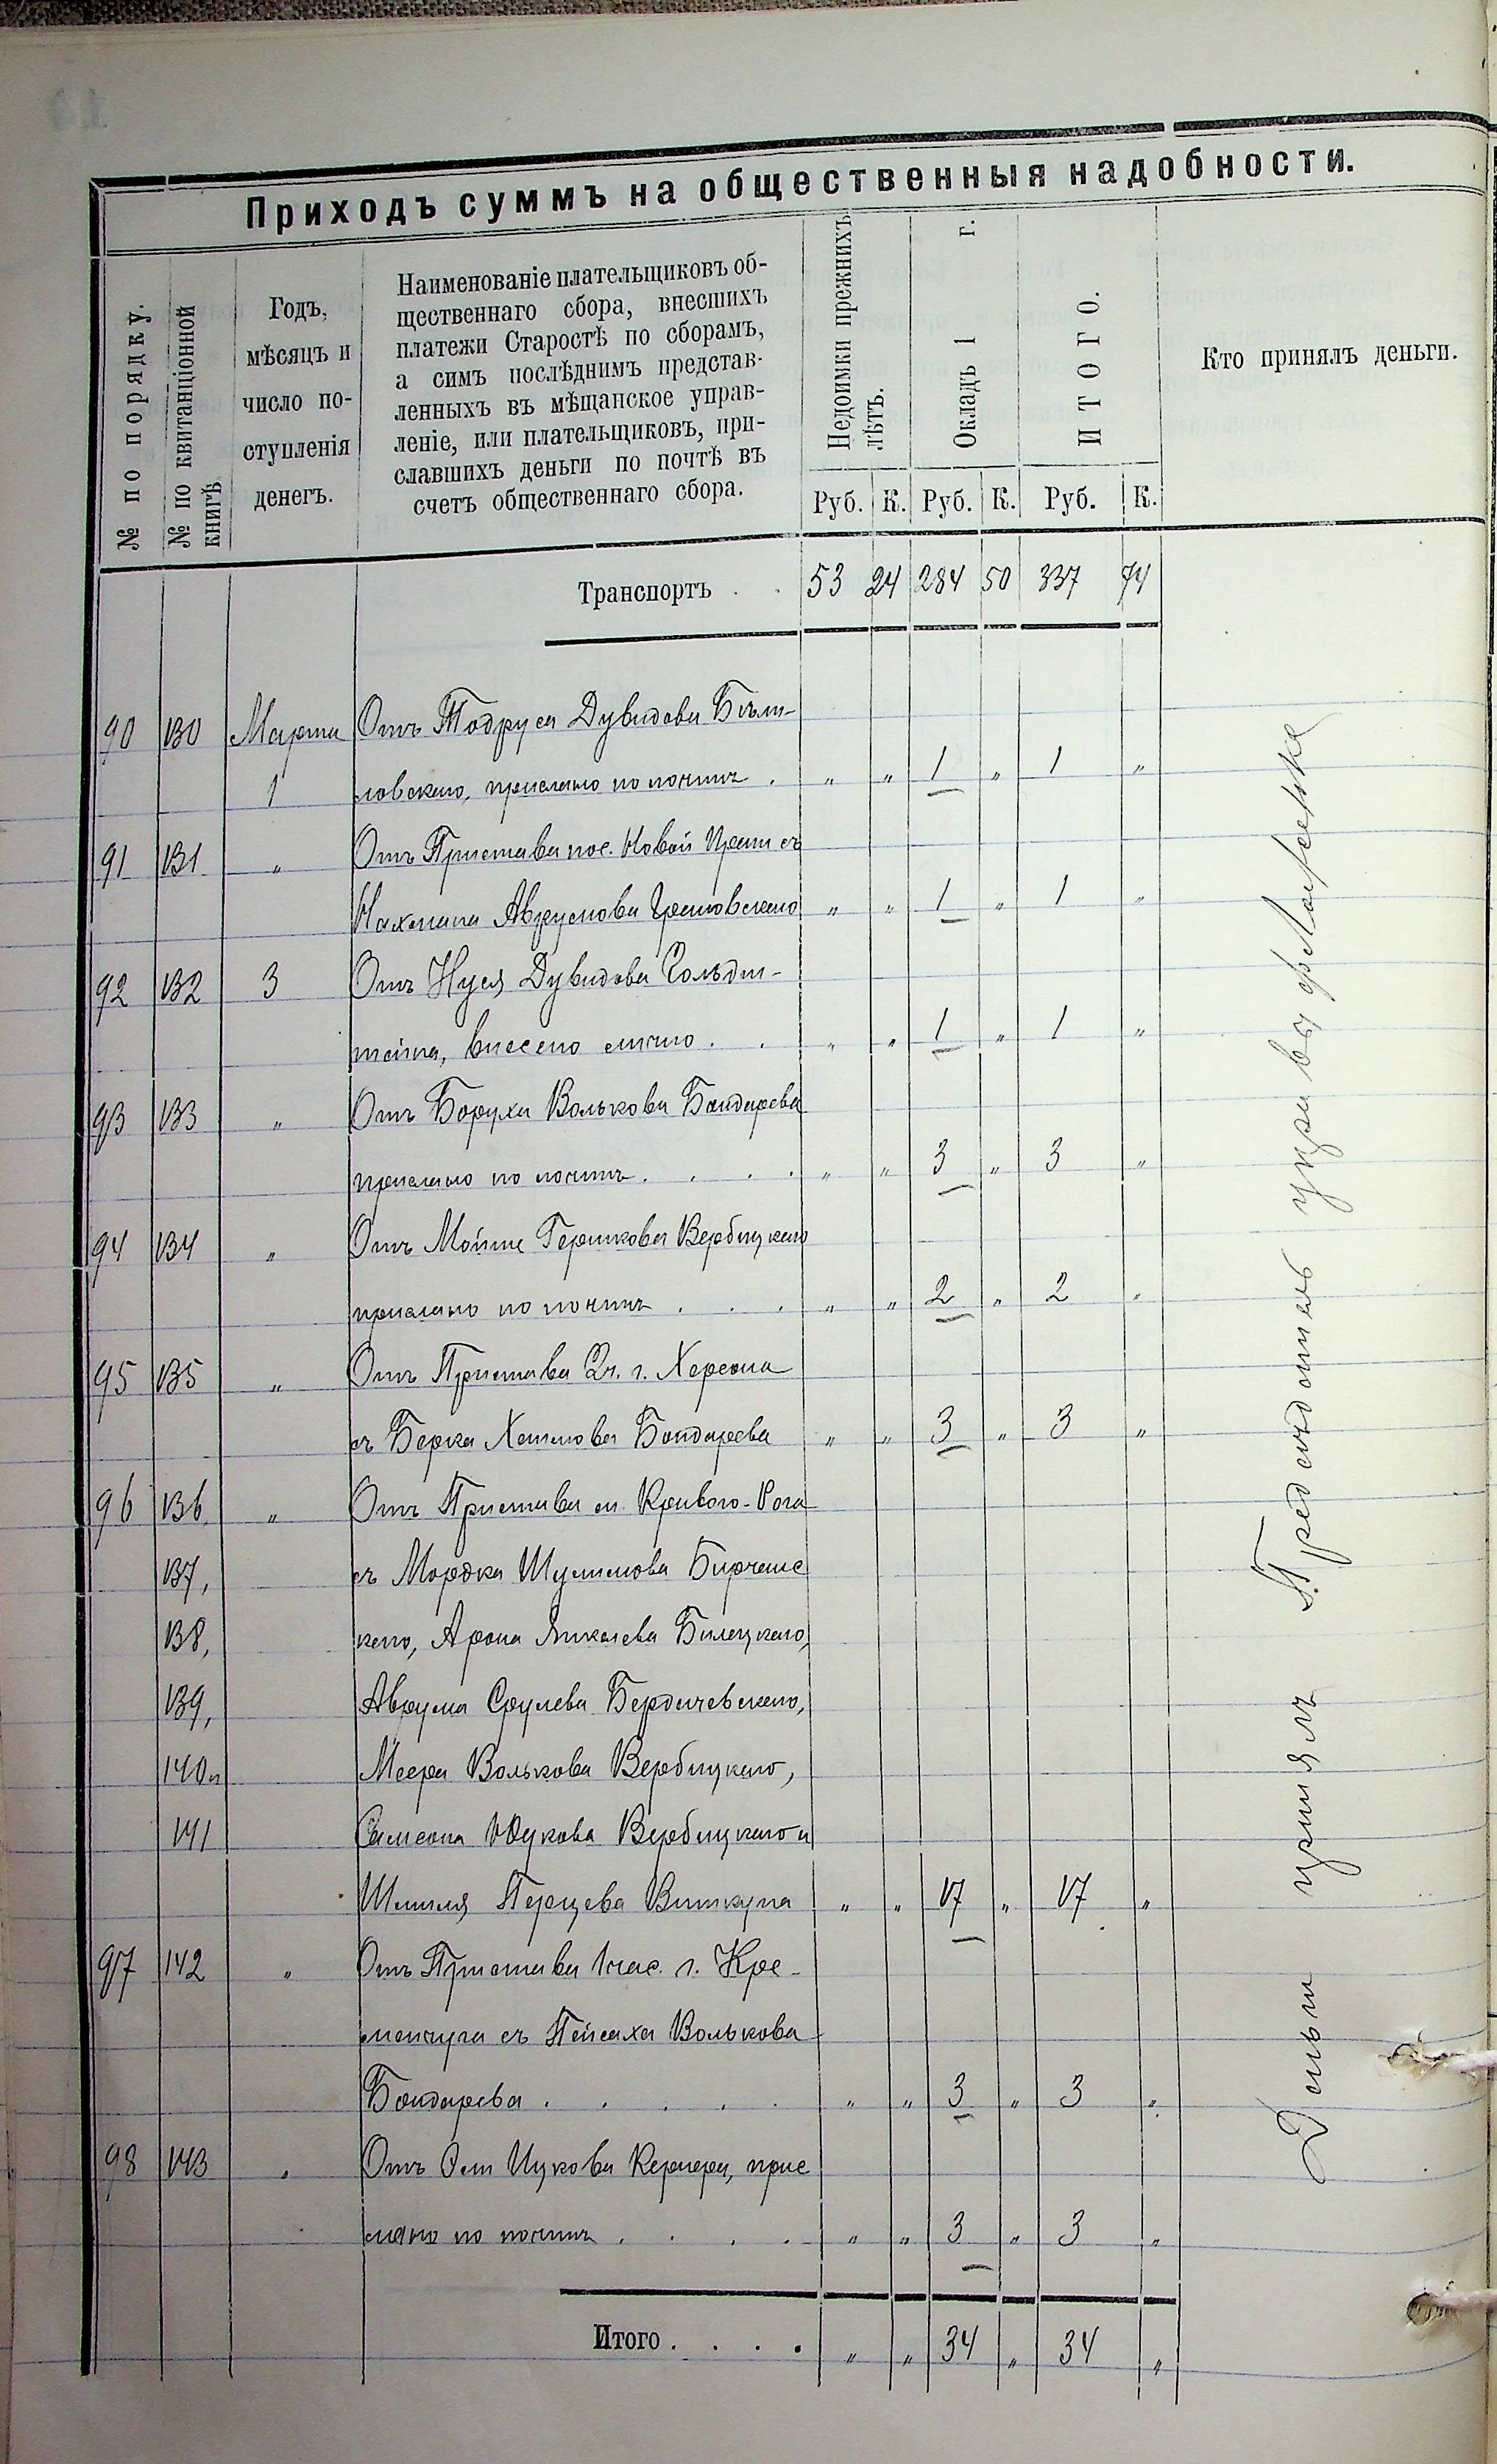 Приходъ суммъ на общественныя надобности.
№ по порядку.
№ по квитанціонной
книгѣ
Годъ,
мѣсяцъ и
число по-
ступленія
денегъ.
Наименованіе плательщиковъ об-
щественнаго сбора, внесшихъ
платежи Старостѣ по сборамъ,
а симъ послѣднимъ представ-
ленныхъ въ мѣщанское управ-
леніе, или плательщиковъ, при-
славшихъ деньги по почтѣ въ
счетъ общественнаго сбора.
Недоимки прежнихъ
лѣтъ.
Окладъ 1 г.
ИТОГО.
Кто принялъ деньги.
Руб. К. Руб. К. Руб. К.
Транспортъ . . 53 24 284 50 337 74
90 130 Марта Отъ Тодруса Дувидова Бѣли-
1 ловскаго, прислано по почтѣ . " " 1 " 1 "
91 131 " Отъ Пристава пос. Новой Праги съ
Нахмана Аврумова " " 1 " 1 "
92 132 3 Отъ Нуся Дувидова Гольдш-
тейна, внесено лично . . " " 1 " 1 "
93 133 " Отъ Боруха Волькова Бондарева
прислано по почтѣ . . . . " " 3 " 3 "
94 134 " Отъ Мойше Гершкова Вербицкаго
прислано по почтѣ . . . " " 2 " 2 "
95 135 " Отъ Пристава 2 ч. г. Херсона
съ Берка Хаимова Бондарева " " 3 " 3 "
96 136, " Отъ Пристава м. Кривого-Рога
137, съ Мордка Шулимова
138, Арона Билецкаго,
139, Аврума Срулева Бердичевскаго,
140 и Меера Волькова Вербицкаго,
141 Самсона Вербицкаго и
Шмиля Перцева " " 17 " 17 "
97 142 " Отъ Пристава 1 час. г. Кре-
менчуга съ Пейсаха Волькова
Бондарева . . . . . " " 3 " 3 "
98 143 " Отъ Ицкова прис
лано по почтѣ . . . . " " 3 " 3 "
Итого . . . . " " 34 " 34 "
Деньги принялъ Предсѣдатель управы